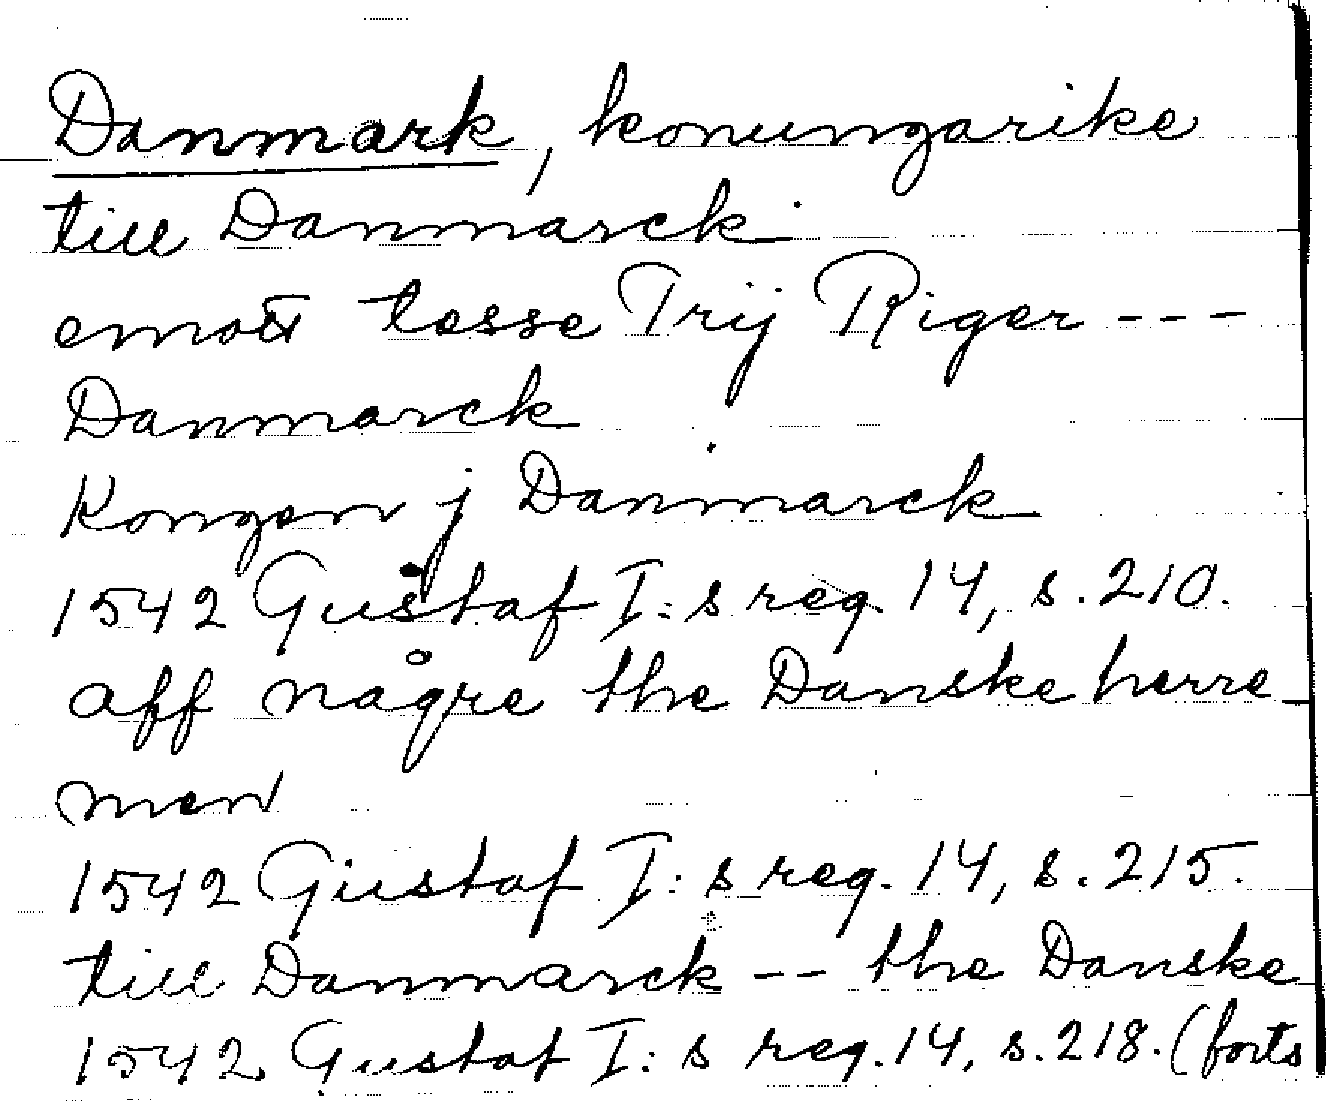 Danmark, konungarike
till Danmarck
emott tesse Trij Riger ---
Danmarck
Kongen j Danmarck
1542 Gustaf I:s reg. 14, s. 210.
aff någre the Danske herre
men
1542 Gustaf I:s reg. 14, s. 215.
till Danmarck -- the Danske
1542 Gustaf I:s reg. 14, s. 218. (forts